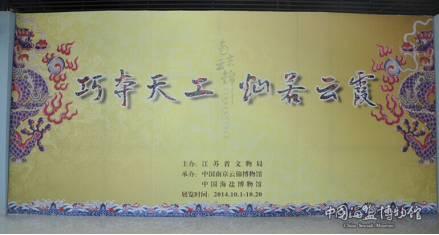 南京云锦
巧夺天工 灿若云霞
主办：江苏省文物局
承办：中国南京云锦博物馆
中国海盐博物馆
展览时间：2014.10.1-10.20
中国海盐博物馆
China Seasalt Museum